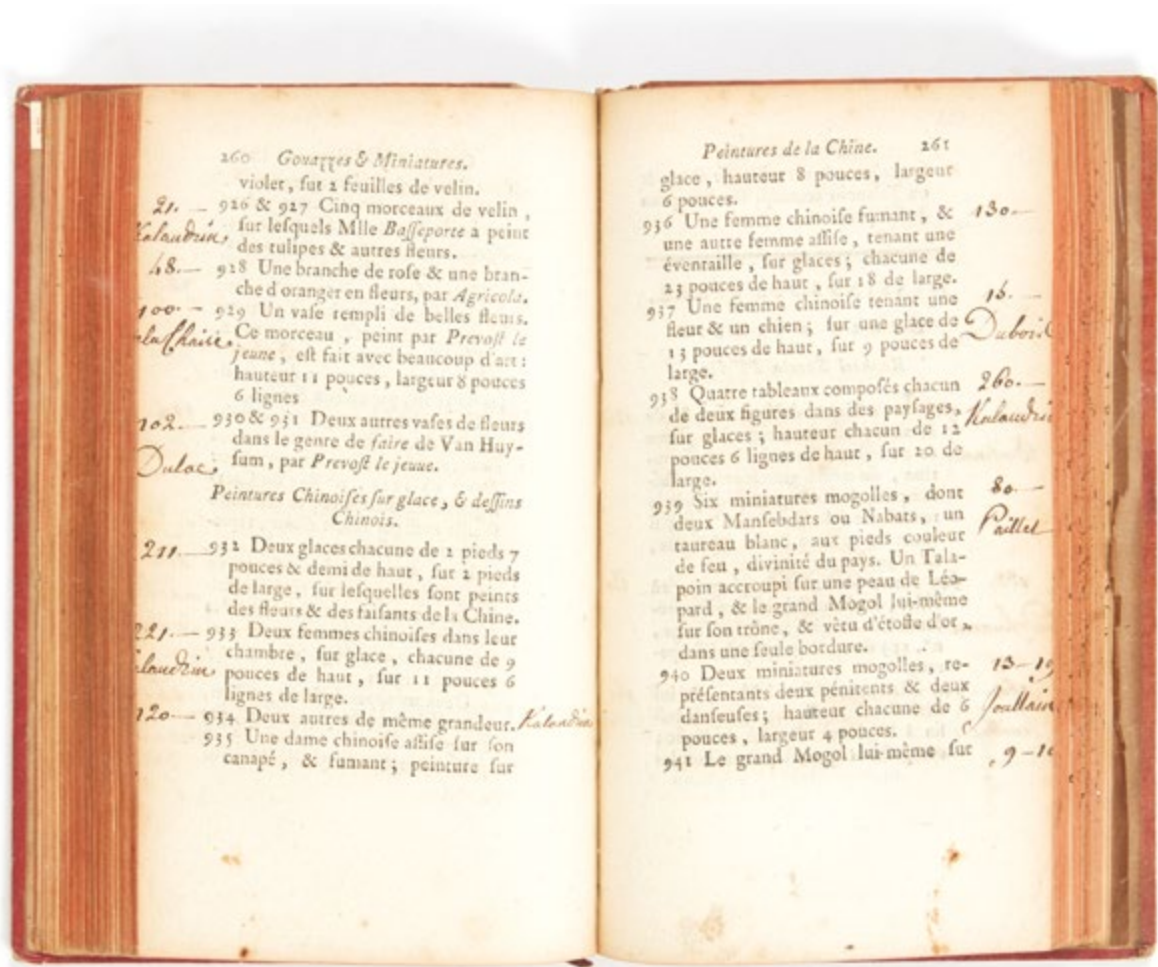 260 Gouazzes & Miniatures.
violet, sur 2 feuilles de velin.
21. — 926 & 927 Cinq morceaux de velin,
sur lesquels Mlle Basseporte a peint
des tulipes & autres fleurs.
48. — 928 Une branche de rose & une bran-
che d'oranger en fleurs, par Agricola.
100. — 929 Un vase rempli de belles fleurs.
Ce morceau, peint par Prevost le
jeune, est fait avec beaucoup d'art:
hauteur 11 pouces, largeur 8 pouces
6 lignes
102. — 930 & 931 Deux autres vases de fleurs
dans le genre de faire de Van Huy-
Dulac sum, par Prevost le jeune.
Peintures Chinoises sur glace, & dessins
Chinois.
211. — 932 Deux glaces chacune de 2 pieds 7
pouces & demi de haut, sur 2 pieds
de large, sur lesquelles sont peints
des fleurs & des faisants de la Chine.
221. — 933 Deux femmes chinoises dans leur
chambre, sur glace, chacune de 9
pouces de haut, sur 11 pouces 6
lignes de large.
120 — 934 Deux autres de même grandeur.
935 Une dame chinoise assise sur son
canapé, & fumant; peinture sur
Peintures de la Chine. 261
glace, hauteur 8 pouces, largeur
6 pouces.
936 Une femme chinoise fumant, & 130 —
une autre femme assise, tenant une
éventaille, sur glaces; chacune de
23 pouces de haut, sur 18 de large.
937 Une femme chinoise tenant une
fleur & un chien; sur une glace de
13 pouces de haut, sur 9 pouces de
large.
938 Quatre tableaux composés chacun 260. —
de deux figures dans des paysages,
sur glaces; hauteur chacun de 12
pouces 6 lignes de haut, sur 20 de
large.
939 Six miniatures mogolles, dont 80 —
deux Mansebdars ou Nabats, un Paillet
taureau blanc, aux pieds couleur
de feu, divinité du pays. Un Tala-
poin accroupi sur une peau de Léo-
pard, & le grand Mogol lui-même
sur son trône, & vêtu d'étoffe d'or,
dans une seule bordure.
940 Deux miniatures mogolles, re- 13 – 19
présentants deux pénitents & deux
danseuses; hauteur chacune de 6 Joullain
pouces, largeur 4 pouces.
941 Le grand Mogol lui-même sur 9 – 10